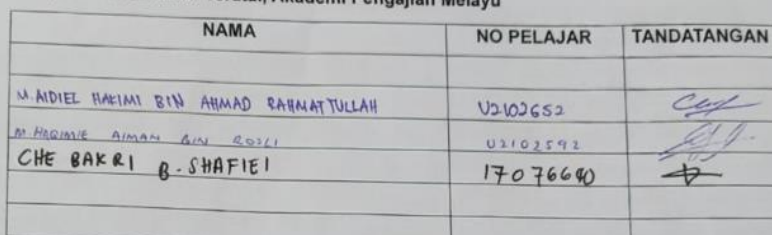 Akademi Pengajian Melayu
NAMA NO PELAJAR TANDATANGAN
M. AIDIEL HAKIMI BIN AHMAD RAHMATTULLAH U2102652
M. HARIMIE AIMAN BIN ROSLI U2102592
CHE BAKRI B. SHAFIEI 17076640